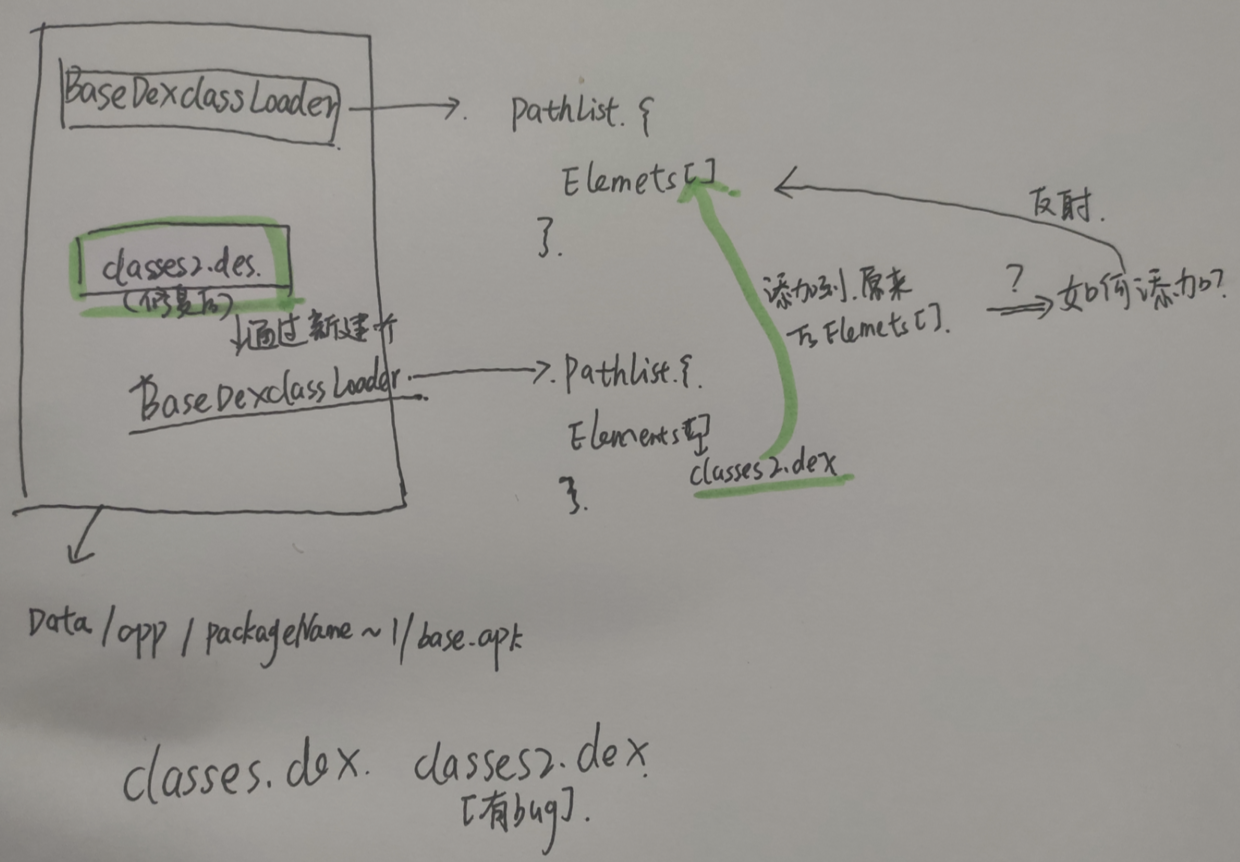 BaseDexclassLoader
pathList. {
Elemets[]
}.
反射.
classes2.des.
(修复后)
添加到.原来
后Elemets[].
?
如何添加?
↓通过新建个
BaseDexclassLoader.
Pathlist.{.
Elements[]
classes2.dex
}.
Data/opp/packageName~1/base.apk
classes.dex. classes2.dex
[有bug].